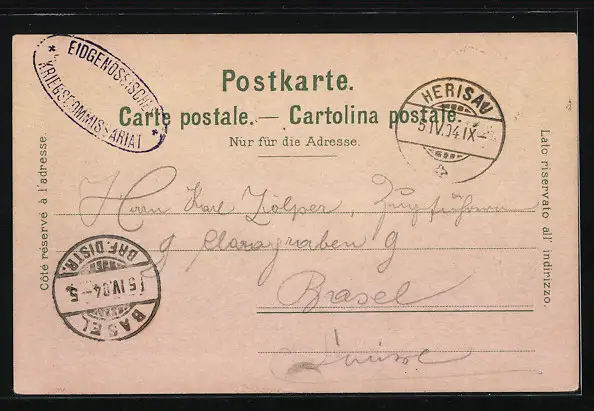 EIDGENÖSSISCHES
KRIEGSCOMMISSARIAT
Postkarte.
Carte postale. — Cartolina postale.
Nur für die Adresse.
HERISAU
5 IV. 04 IX-
Côté réservé à l'adresse.
Lato riservato all' indirizzo.
Herrn Karl
9 Claragraben 9
Basel
BASEL
5 IV. 04 - 5
BRF. DISTR.